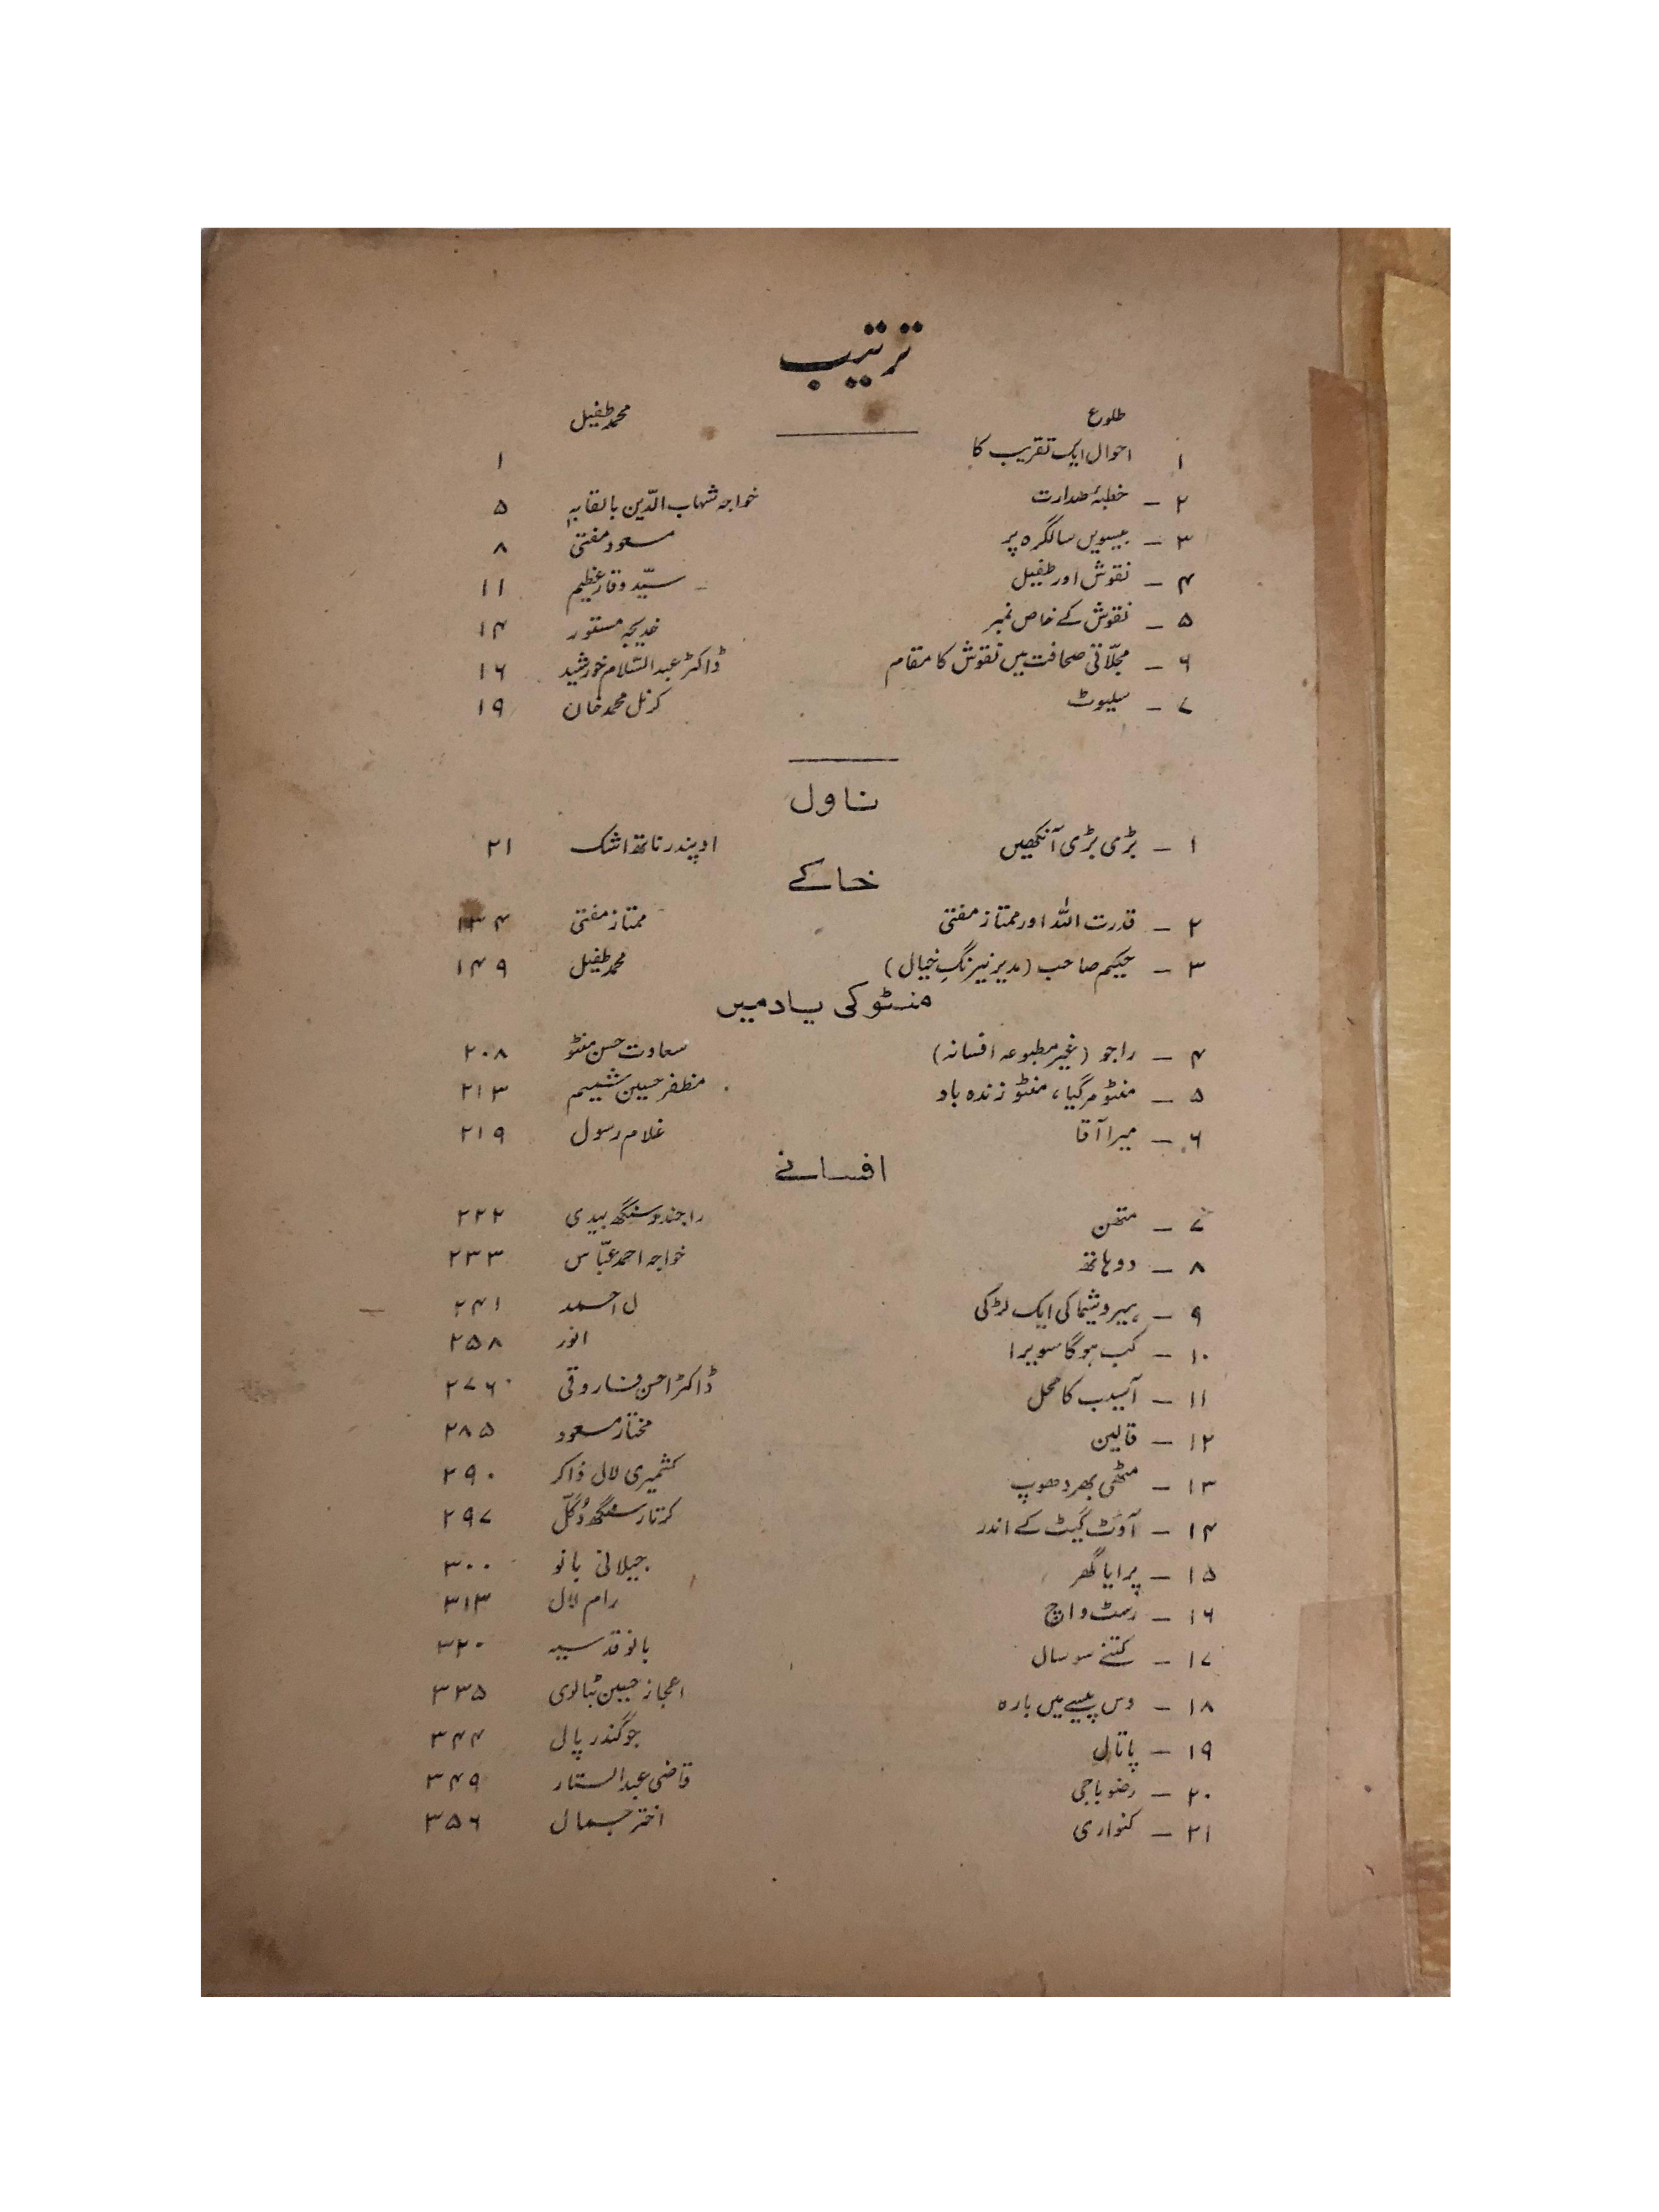 ترتیب
طلوع محمد طفیل
۱ احوال ایک تقریب کا ۱
۲ - خطبۂ صدارت خواجہ شہاب الدّین بالقابہٖ ۵
۳ - بیسویں سالگرہ پر مسعود مفتی ۸
۴ - نقوش اور طفیل سیّد وقار عظیم ۱۱
۵ - نقوش کے خاص نمبر خدیجہ مستور ۱۴
۶ - مجلّاتی صحافت میں نقوش کا مقام ڈاکٹر عبد السّلام خورشید ۱۶
۷ - سیلیوٹ کرنل محمد خان ۱۹
ناول
۱ - بڑی بڑی آنکھیں اوپندر ناتھ اشک ۲۱
خاکے
۲ - قدرت اللہ اور ممتاز مفتی ممتاز مفتی ۱۳۴
۳ - حکیم صاحب (مدیر نیرنگِ خیال) محمد طفیل ۱۴۹
منٹو کی یاد میں
۴ - راجو (غیر مطبوعہ افسانہ) سعادت حسن منٹو ۲۰۸
۵ - منٹو مرگیا، منٹو زندہ باد مظفر حسین شمیم ۲۱۳
۶ - میرا آقا غلام رسول ۲۱۹
افسانے
۷ - متھن راجندر سنگھ بیدی ۲۲۲
۸ - دو ہاتھ خواجہ احمد عبّاس ۲۳۳
۹ - ہیروشیما کی ایک لڑکی ل احمد ۲۴۱
۱۰ - کب ہوگا سویرا انور ۲۵۸
۱۱ - آسیب کا محل ڈاکٹر احسن فاروقی ۲۷۶
۱۲ - قالین مختار مسعود ۲۸۵
۱۳ - مٹھی بھر دھوپ کشمیری لال ذاکر ۲۹۰
۱۴ - آؤٹ گیٹ کے اندر کرتار سنگھ دُگّل ۲۹۷
۱۵ - پرایا گھر جیلانی بانو ۳۰۰
۱۶ - رسٹ واچ رام لال ۳۱۳
۱۷ - کتنے سو سال بانو قدسیہ ۳۲۰
۱۸ - دس پیسے میں بارہ اعجاز حسین بٹالوی ۳۳۵
۱۹ - پاتال جوگندر پال ۳۴۴
۲۰ - رضو باجی قاضی عبد الستار ۳۴۹
۲۱ - کنواری اختر جمال ۳۵۶